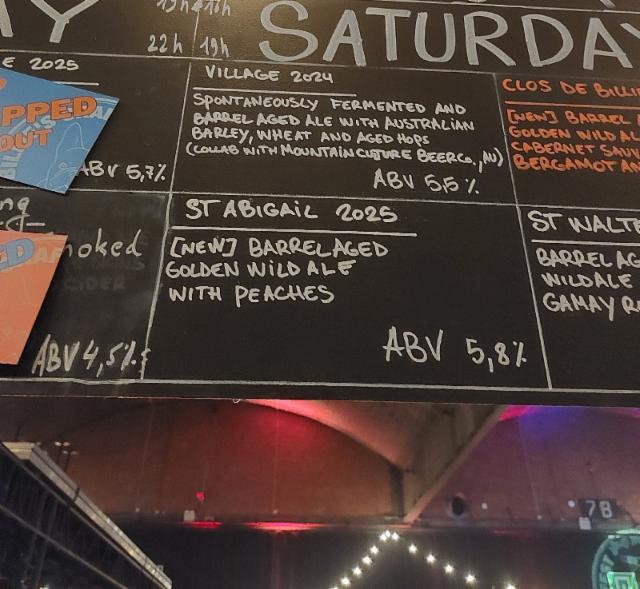 19h
22h 19h
SATURDAY
E 2025
PPED
OUT
ABV 5,7%
VILLAGE 2024
SPONTANEOUSLY FERMENTED AND
BARREL AGED ALE WITH AUSTRALIAN
BARLEY, WHEAT AND AGED HOPS
(COLLAB WITH MOUNTAIN CULTURE BEER CO., AU)
ABV 5,5%
CLOS DE BILLI
[NEW] BARREL A
GOLDEN WILD AL
CABERNET SAUV
BERGAMOT AN
ng
moked
ABV 4,5%
ST ABIGAIL 2025
[NEW] BARREL AGED
GOLDEN WILD ALE
WITH PEACHES
ABV 5,8%
ST WALTE
BARREL AG
WILD ALE
GAMAY R
78